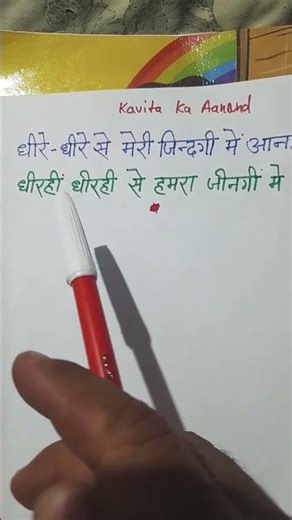 Kavita Ka Aanand
धीरे-धीरे से मेरी जिन्दगी में
धीरहीं धीरही से हमरा जीनगीं मे